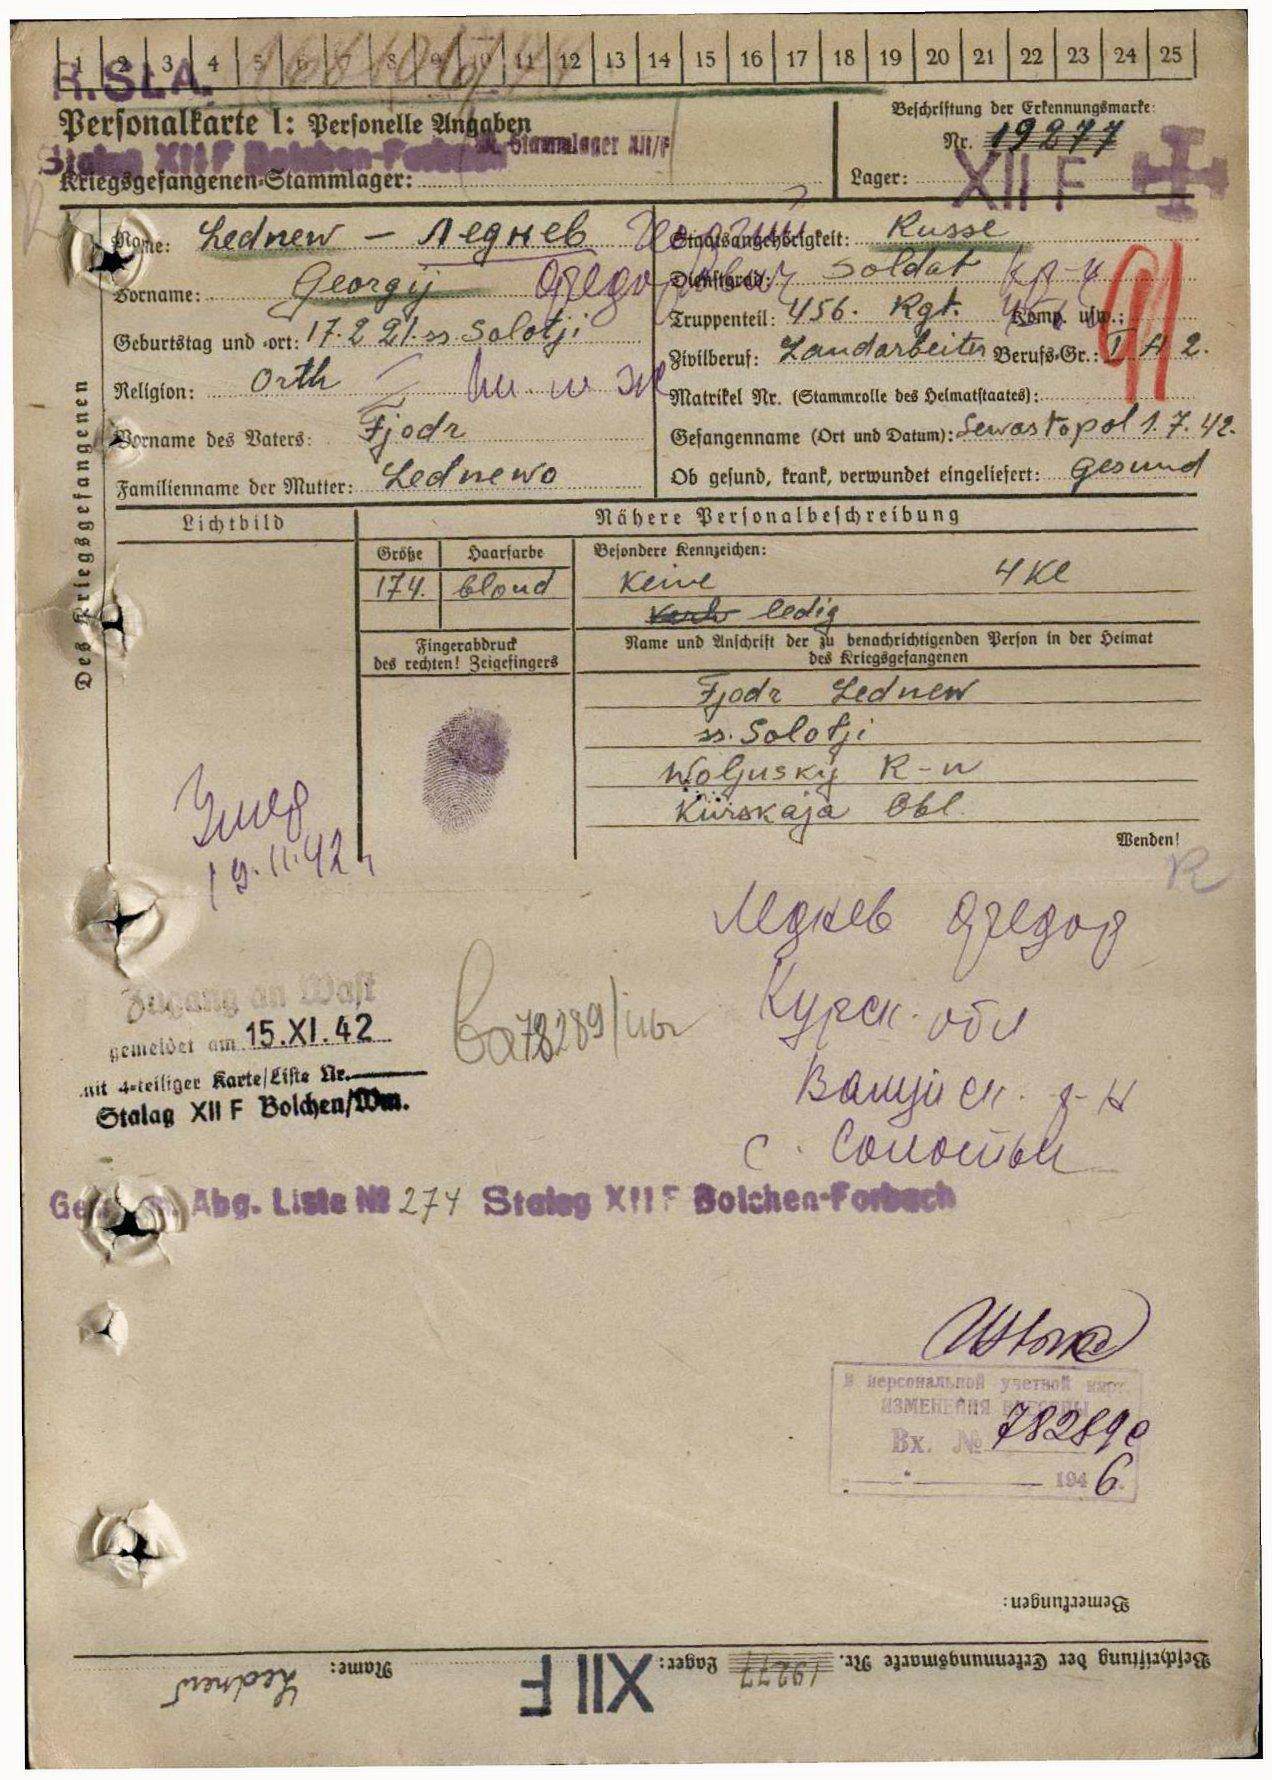 1 2 3 4 5 6 8 9 10 11 12 13 14 15 16 17 18 19 20 21 22 23 24 25
R.SLA.
Personalkarte I: Personelle Angaben
Beschriftung der Erkennungsmarke:
Nr. 19277
Stalag XII F Bolchen-Forbach M. Stammlager XII/F
Kriegsgefangenen-Stammlager:
Lager: XII F
Des Kriegsgefangenen
Name: Lednew – Леднев Георгий
Staatsangehörigkeit: Russe
Vorname: Georgij Федорович
Dienstgrad: Soldat кр-ц
Truppenteil: 456. Rgt. Komp. usw.:
Geburtstag und -ort: 17.2 21. ss. Solotji
Zivilberuf: Landarbeiter Berufs-Gr.: I A 2.
Religion: Orth
Matrikel Nr. (Stammrolle des Heimatstaates):
Vorname des Vaters: Fjodr
Gefangenname (Ort und Datum): Sewastopol 1.7.42.
Familienname der Mutter: Lednewo
Ob gesund, krank, verwundet eingeliefert: gesund
Lichtbild
Nähere Personalbeschreibung
Größe Haarfarbe Besondere Kennzeichen:
174. blond Keine 4 Kl
ledig
Fingerabdruck
des rechten! Zeigefingers
Name und Anschrift der zu benachrichtigenden Person in der Heimat
des Kriegsgefangenen
Fjodr Lednew
ss. Solotji
Woljusky R-n
Kurskaja Obl.
Wenden!
19.11.42
R
Леднев Федор
Курск. обл
Валуйск. р-н
с. Солотьи
Zugang an Wast
gemeldet am 15.XI.42
mit 4-teiliger Karte/Liste Nr.
Stalag XII F Bolchen/Wm.
78289
Abg. Liste № 274 Stalag XII F Bolchen-Forbach
В персональной учетной карт.
ИЗМЕНЕНИЯ ВНЕСЕНЫ
Вх. № 78289с
1946.
Bemerkungen:
Beschriftung der Erkennungsmarke Nr. 19277 Lager: XII F Name: Lednew